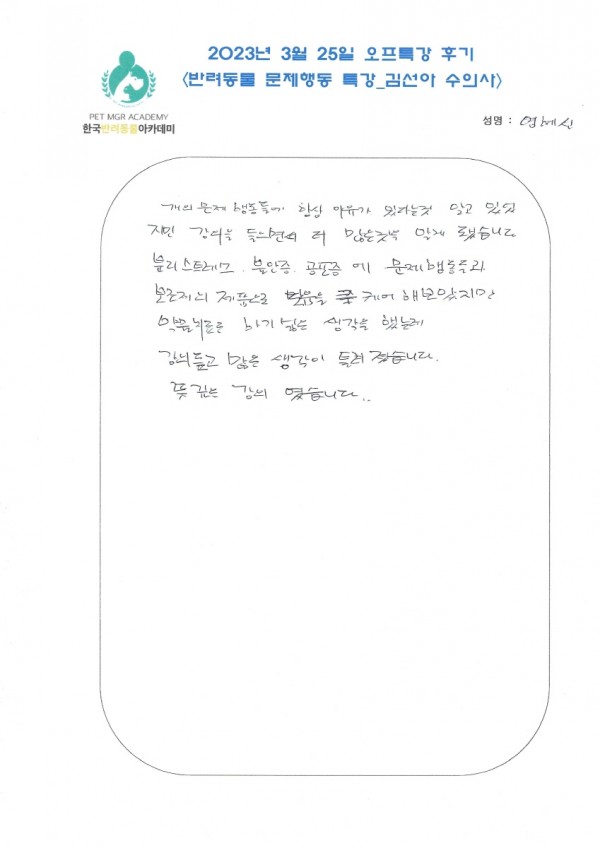 2023년 3월 25일 오프특강 후기
<반려동물 문제행동 특강_김선아 수의사>
PET MGR ACADEMY
한국반려동물아카데미
성명 : 염혜신
개의 문제 행동들에 항상 이유가 있다는것 알고 있었
지만 강의를 들으면서 더 많은것을 알게 됐습니다
분리스트레스. 불안증. 공포증 에 문제행동들과
보조제나 제품으로 케어 해보았지만
약물치료는 하기 싫은 생각을 했는데
강의듣고 많은 생각이 들려 졌습니다.
뜻 깊은 강의 였습니다..